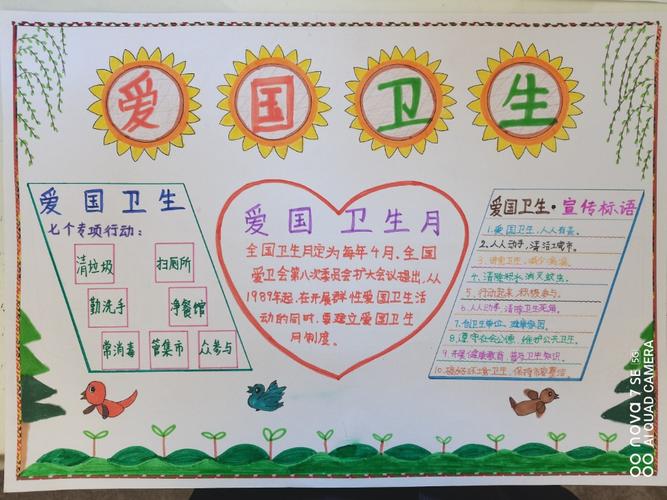 爱国卫生
爱国卫生
七个专项行动：
清垃圾 扫厕所
勤洗手 净餐馆
常消毒 管集市 众参与
爱国卫生月
全国卫生月定为每年4月。全国
爱卫会第八次委员会扩大会议提出，从
1989年起，在开展群性爱国卫生活
动的同时，要建立爱国卫生
月制度。
爱国卫生·宣传标语
1.爱国卫生，人人有责。
2.人人动手，清洁城市。
3.讲究卫生，减少疾病。
4.清除积水，消灭蚊虫。
5.行动起来，积极参与。
6.人人动手，清除卫生死角。
7.创卫生单位，建
8.遵守社会公德，维护公共卫生。
9.开展健康教育，普及卫生知识。
10.搞好环境卫生，保持市容整洁。
nova 7 SE 5G
AI QUAD CAMERA